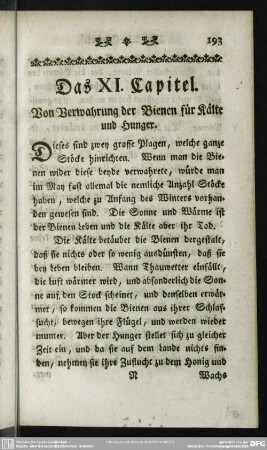 193
Das XI. Capitel.
Von Verwahrung der Bienen für Kälte
und Hunger.
Dieses sind zwey grosse Plagen, welche ganze
Stöcke hinrichten. Wenn man die Bie-
nen wider diese beyde verwahrete, würde man
im May fast allemal die nemliche Anzahl Stöcke
haben, welche zu Anfang des Winters vorhan-
den gewesen sind. Die Sonne und Wärme ist
der Bienen Leben und die Kälte aber ihr Tod.
Die Kälte betäubet die Bienen dergestalt,
daß sie nichts oder so wenig ausdünsten, daß sie
bey Leben bleiben. Wann Thauwetter einfällt,
die Luft wärmer wird, und absonderlich die Son-
ne auf den Stock scheinet, und denselben erwär-
met, so kommen die Bienen aus ihrer Schlaf-
sucht, bewegen ihre Flügel, und werden wieder
munter. Aber der Hunger stellet sich zu gleicher
Zeit ein, und da sie auf dem Lande nichts fin-
den, nehmen sie ihre Zuflucht zu dem Honig und
N Wachs
DFG